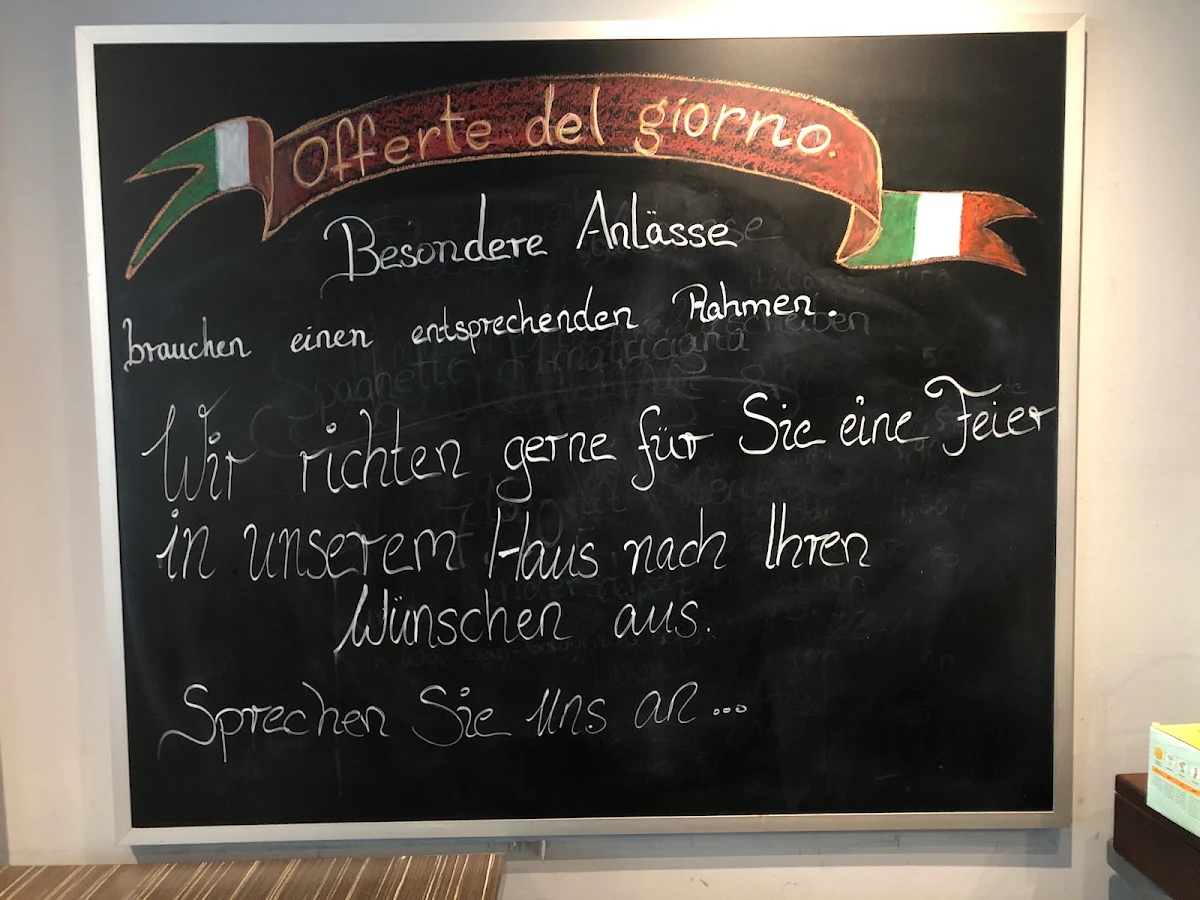 Offerte del giorno.
Besondere Anlässe
brauchen einen entsprechenden Rahmen.
Wir richten gerne für Sie eine Feier
in unserem Haus nach Ihren
Wünschen aus.
Sprechen Sie uns an...